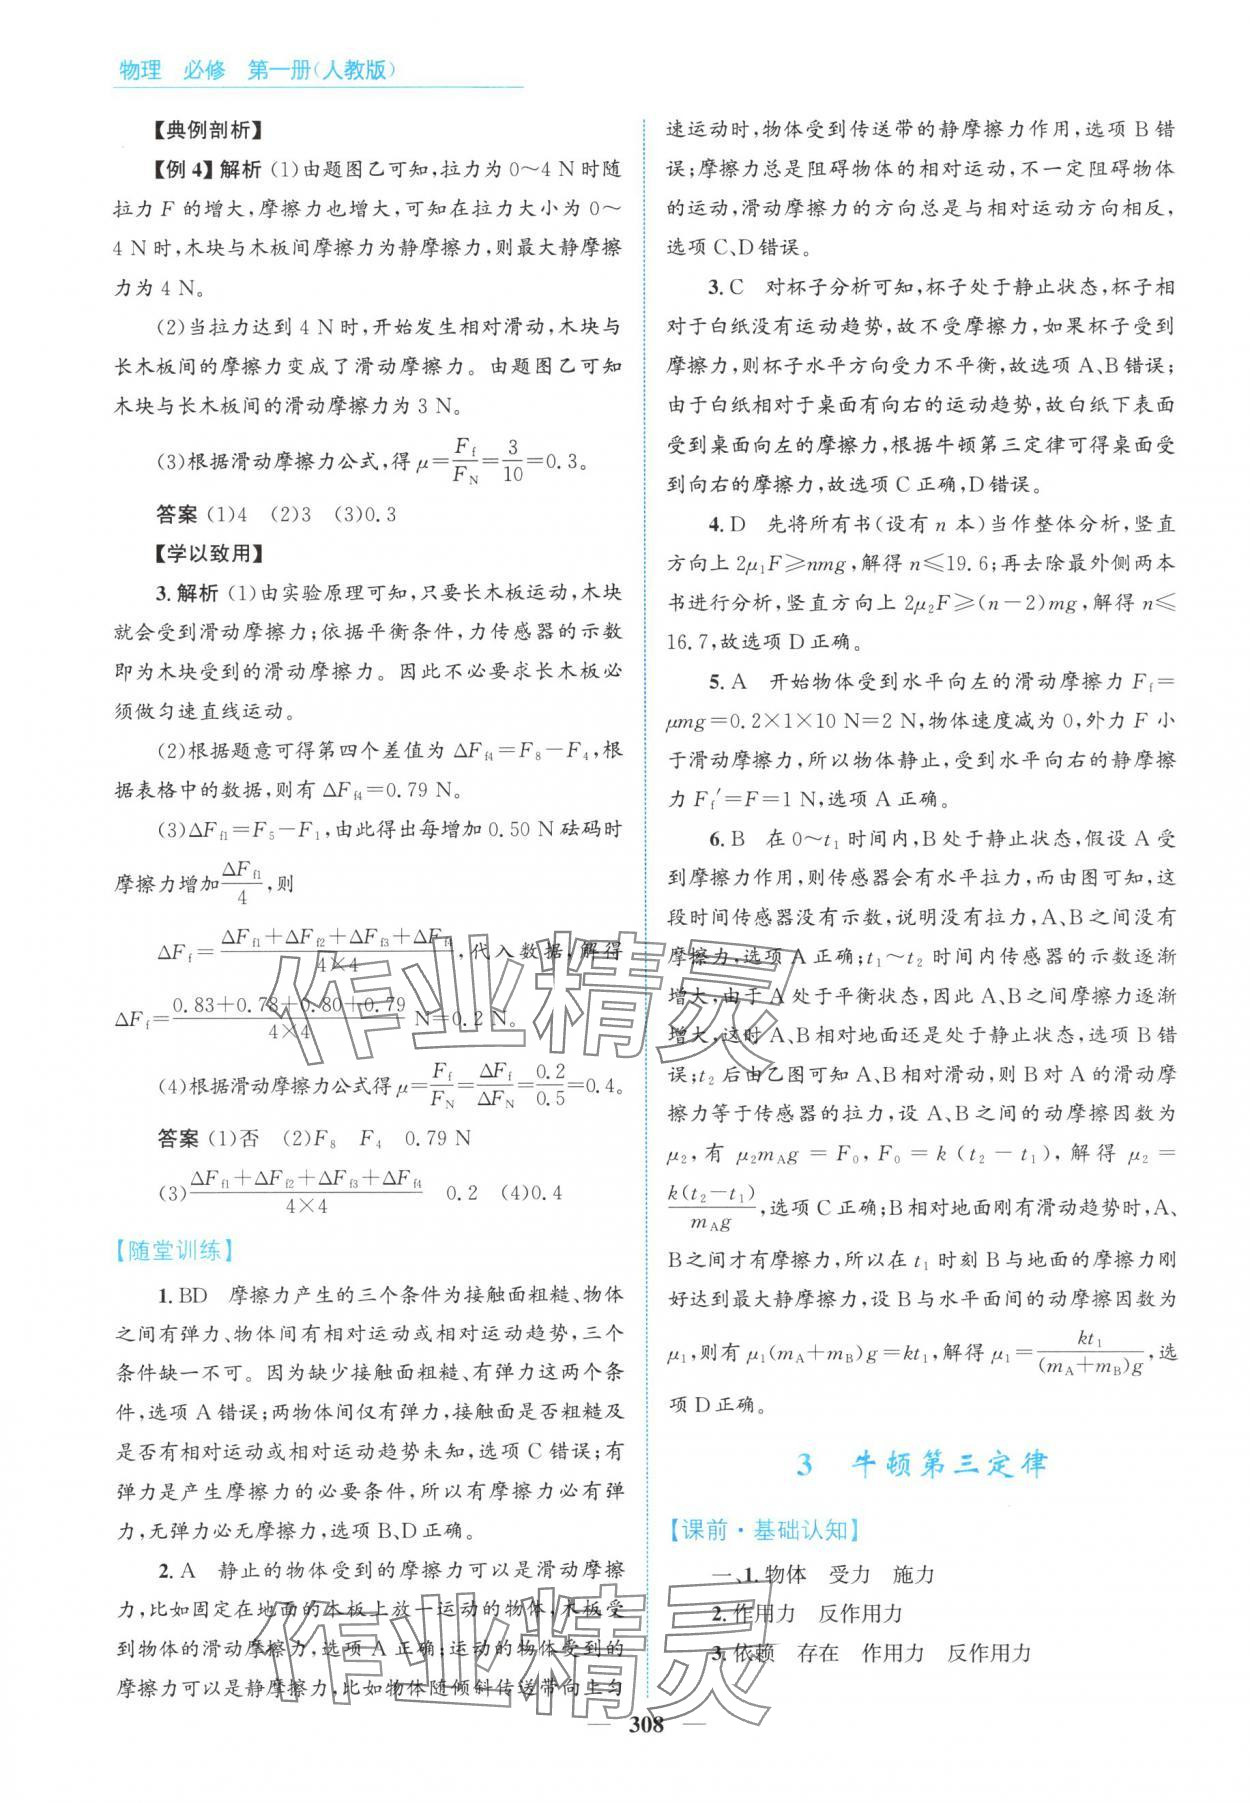 物理 必修 第一册(人教版)
【典例剖析】
【例4】解析 (1)由题图乙可知,拉力为0～4 N时随
拉力 F 的增大,摩擦力也增大,可知在拉力大小为0～
4 N时,木块与木板间摩擦力为静摩擦力,则最大静摩擦
力为4 N。
(2)当拉力达到4 N时,开始发生相对滑动,木块与
长木板间的摩擦力变成了滑动摩擦力。由题图乙可知
木块与长木板间的滑动摩擦力为3 N。
(3)根据滑动摩擦力公式,得 μ=F_f/F_N=3/10=0.3。
答案 (1)4 (2)3 (3)0.3
【学以致用】
3.解析 (1)由实验原理可知,只要长木板运动,木块
就会受到滑动摩擦力;依据平衡条件,力传感器的示数
即为木块受到的滑动摩擦力。因此不必要求长木板必
须做匀速直线运动。
(2)根据题意可得第四个差值为 ΔF_f4=F_8-F_4,根
据表格中的数据,则有 ΔF_f4=0.79 N。
(3)ΔF_f1=F_5-F_1,由此得出每增加0.50 N砝码时
摩擦力增加ΔF_f1/4,则
ΔF_f=(ΔF_f1+ΔF_f2+ΔF_f3+ΔF_f4)/(4×4),代入数据,解得
ΔF_f=(0.83+0.78+0.80+0.79)/(4×4) N=0.2 N。
(4)根据滑动摩擦力公式得 μ=F_f/F_N=ΔF_f/ΔF_N=0.2/0.5=0.4。
答案 (1)否 (2)F_8 F_4 0.79 N
(3)(ΔF_f1+ΔF_f2+ΔF_f3+ΔF_f4)/(4×4) 0.2 (4)0.4
【随堂训练】
1.BD 摩擦力产生的三个条件为接触面粗糙、物体
之间有弹力、物体间有相对运动或相对运动趋势,三个
条件缺一不可。因为缺少接触面粗糙、有弹力这两个条
件,选项A错误;两物体间仅有弹力,接触面是否粗糙及
是否有相对运动或相对运动趋势未知,选项C错误;有
弹力是产生摩擦力的必要条件,所以有摩擦力必有弹力,
无弹力必无摩擦力,选项B、D正确。
2.A 静止的物体受到的摩擦力可以是滑动摩擦
力,比如固定在地面的木板上放一运动的物体,木板受
到物体的滑动摩擦力,选项A正确;运动的物体受到的
摩擦力可以是静摩擦力,比如物体随倾斜传送带向上匀
速运动时,物体受到传送带的静摩擦力作用,选项B错
误;摩擦力总是阻碍物体的相对运动,不一定阻碍物体
的运动,滑动摩擦力的方向总是与相对运动方向相反,
选项C、D错误。
3.C 对杯子分析可知,杯子处于静止状态,杯子相
对于白纸没有运动趋势,故不受摩擦力,如果杯子受到
摩擦力,则杯子水平方向受力不平衡,故选项A、B错误;
由于白纸相对于桌面有向右的运动趋势,故白纸下表面
受到桌面向左的摩擦力,根据牛顿第三定律可得桌面受
到向右的摩擦力,故选项C正确,D错误。
4.D 先将所有书(设有 n 本)当作整体分析,竖直
方向上 2μ_1F≥nmg,解得 n≤19.6;再去除最外侧两本
书进行分析,竖直方向上 2μ_2F≥(n-2)mg,解得 n≤
16.7,故选项D正确。
5.A 开始物体受到水平向左的滑动摩擦力 F_f=
μmg=0.2×1×10 N=2 N,物体速度减为0,外力 F 小
于滑动摩擦力,所以物体静止,受到水平向右的静摩擦
力 F_f′=F=1 N,选项A正确。
6.B 在0～t_1 时间内,B处于静止状态,假设A受
到摩擦力作用,则传感器会有水平拉力,而由图可知,这
段时间传感器没有示数,说明没有拉力,A、B之间没有
摩擦力,选项A正确;t_1～t_2 时间内传感器的示数逐渐
增大,由于A处于平衡状态,因此A、B之间摩擦力逐渐
增大,这时A、B相对地面还是处于静止状态,选项B错
误;t_2 后由乙图可知A、B相对滑动,则B对A的滑动摩
擦力等于传感器的拉力,设A、B之间的动摩擦因数为
μ_2,有 μ_2m_Ag=F_0,F_0=k(t_2-t_1),解得 μ_2=
k(t_2-t_1)/(m_Ag),选项C正确;B相对地面刚有滑动趋势时,A、
B之间才有摩擦力,所以在 t_1 时刻B与地面的摩擦力刚
好达到最大静摩擦力,设B与水平面间的动摩擦因数为
μ_1,则有 μ_1(m_A+m_B)g=kt_1,解得 μ_1=kt_1/((m_A+m_B)g),选
项D正确。
3 牛顿第三定律
【课前·基础认知】
一、1.物体 受力 施力
2.作用力 反作用力
3.依赖 存在 作用力 反作用力
308
作业精灵
作业精灵